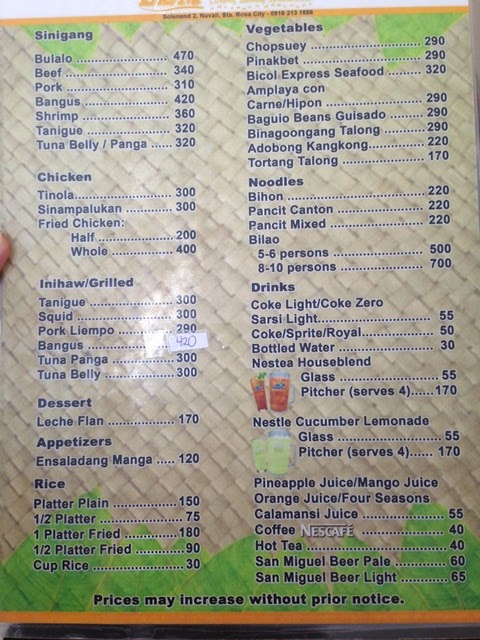 Solenand 2, Nuvali, Sta. Rosa City - 0916 213 1886
Sinigang
Bulalo 470
Beef 340
Pork 310
Bangus 420
Shrimp 360
Tanigue 320
Tuna Belly / Panga 320
Chicken
Tinola 300
Sinampalukan 300
Fried Chicken:
Half 200
Whole 400
Inihaw/Grilled
Tanigue 300
Squid 300
Pork Liempo 290
Bangus 420
Tuna Panga 300
Tuna Belly 300
Dessert
Leche Flan 170
Appetizers
Ensaladang Manga 120
Rice
Platter Plain 150
1/2 Platter 75
1 Platter Fried 180
1/2 Platter Fried 90
Cup Rice 30
Vegetables
Chopsuey 290
Pinakbet 290
Bicol Express Seafood 320
Amplaya con
Carne/Hipon 290
Baguio Beans Guisado 290
Binagoongang Talong 290
Adobong Kangkong 220
Tortang Talong 170
Noodles
Bihon 220
Pancit Canton 220
Pancit Mixed 220
Bilao
5-6 persons 500
8-10 persons 700
Drinks
Coke Light/Coke Zero
Sarsi Light 55
Coke/Sprite/Royal 50
Bottled Water 30
Nestea Houseblend
Glass 55
Pitcher (serves 4) 170
Nestle Cucumber Lemonade
Glass 55
Pitcher (serves 4) 170
Pineapple Juice/Mango Juice
Orange Juice/Four Seasons
Calamansi Juice 55
Coffee NESCAFÉ 40
Hot Tea 40
San Miguel Beer Pale 60
San Miguel Beer Light 65
Prices may increase without prior notice.